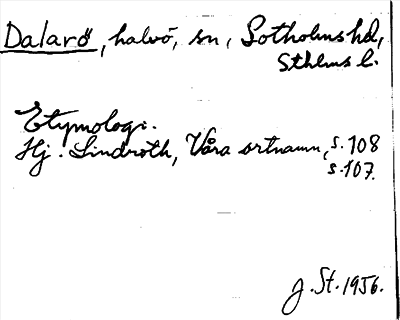 Dalarö, halvö, sn, Sotholms hd,
Sthlms l.
Etymologi.
Hj. Lindroth, Våra ortnamn, s. 108
s. 107.
J. St. 1956.